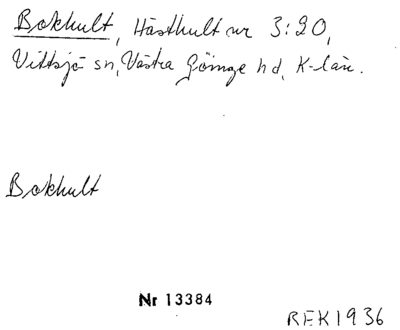 Bokhult, Hästhult nr 3:20,
Vittsjö sn, Västra Göinge hd, K-län.
Bokhult
Nr 13384
REK1936